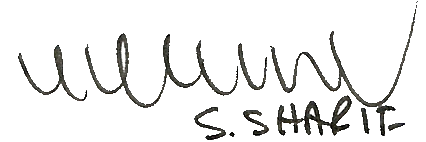 S. SHARIF